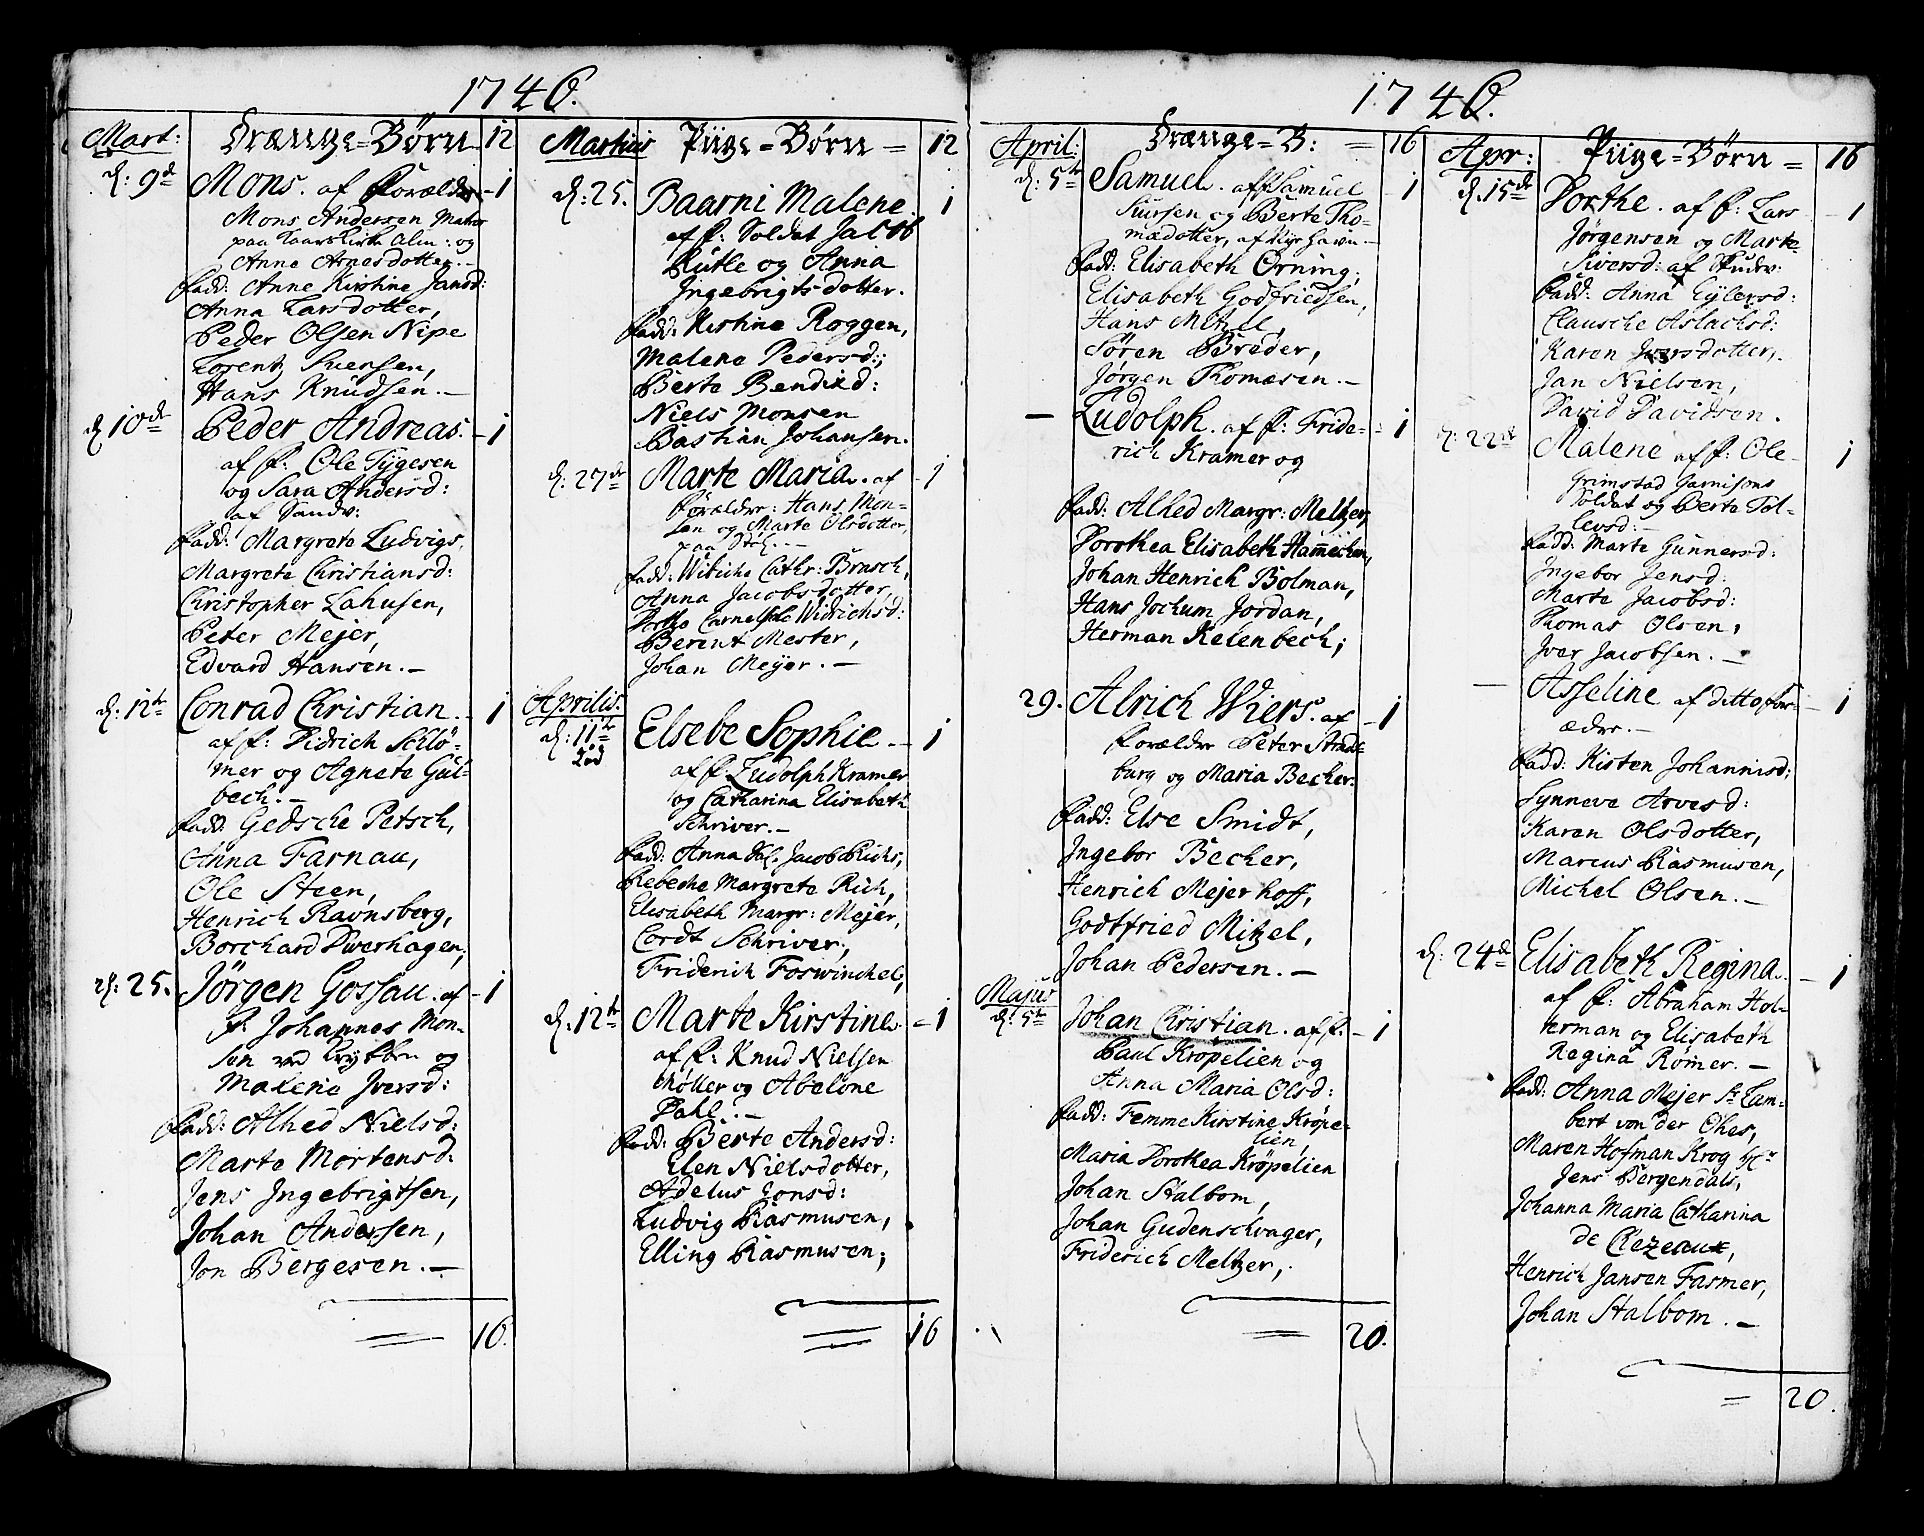 1746.
Mart: Drænge-Børn 12
d: 9de Mons. af Forældre - 1
Mons Andersen
paa Kaarskirke Alm: og
Anne Arnesdotter. -
fadd: Anne Kirstine Jansd:
Anna Larsdotter,
Peder Olsen Nipe
Lorentz Iversen,
Hans Knudsen. -
d 10de Peder Andreas. - 1
af f: Ole Tygesen
og Sara Andersd:
af Sandv:
fadd: Margrete Ludvigs,
Margrete Christiansd:
Christopher Lahusen,
Peter Mejer,
Edvard Hansen. -
d: 12te Conrad Christian. - 1
af f: Didrich Schlö-
mer og Agnete Gul-
bech. -
fadd: Gedsche Petsch,
Anna Farnau,
Ole Steen,
Henrich Ravnsberg,
Borchard Dverhagen;
d: 25. Jørgen Gossau. af - 1
f: Johannes Mon-
sen ved Krybben og
Malene Iversd:
fadd: Alhed Nielsd:
Marte Mortensd:
Jens Ingebrigtsen,
Johan Andersen,
Jon Børgesen. -
16.
Martius Piige-Børn - 12
d: 25. Baarni Malene. 1
af f: Soldat Jacob
Rutle og Anna
Ingebrigtsdotter.
fadd: Kistine Roggen,
Malene Pedersd:;
Berte Bendixd:
Niels Monsen
Bastian Johansen.
d: 27de Marte Maria. af - 1
forældre: Hans Mon-
sen og Marte Olsdotter,
paa Støl. -
fadd: Wibiche Cathr: Brasch,
Anna Jacobsdotter,
Dorthe Widrichsd:
Berent Mester,
Johan Meyer. -
Aprilis.
d: 11te Elsebe Sophie. - 1
af f: Ludolph Kramer
og Catharina Elisabeth
Schriver. -
fadd: Anna Jacob Richs,
Rebeche Margrete Rich,
Elisabeth Margr: Mejer,
Cordt Schriver,
Friderich Foswinchel,
d: 12te Marte Kirstine. - 1
af f: Knud Nielsen
Møller og Abelone
Dahl. -
fadd: Berte Andersd:
Elen Nielsdotter,
Adelus Lonsd:
Ludvig Rasmusen,
Elling Rasmusen;
16
1746.
April: Drænge-B: = 16
d: 5te Samuel. af f: Samuel - 1
Siursen og Berte Tho-
mædotter, af Kyrhavn -
fadd: Elisabeth Orning,
Elisabeth Godfriedsen,
Hans Mitzel,
Søren Breder,
Jørgen Thomæsen. -
- Ludolph. af f: Fride- - 1
rich Kramer og
fadd: Alhed Margr: Meltzer,
Dorothea Elisabeth Hammechen,
Johan Henrich Bolman,
Hans Jochum Jordan,
Herman Kelenbech;
29. Alrich Wiers. af - 1
forældre Peter Strade-
burg og Maria Becher.
fadd: Else Smidt,
Ingebor Becher,
Henrich Mejerhoff,
Godtfried Mitzel,
Johan Pedersen. -
Majus
d: 5te Johan Christian. af f: - 1
Paul Kröpelien og
Anna Maria Olsd:
fadd: Femme Kirstine Kröpe-
lien,
Maria Dorothea Kröpelien
Johan Stalbom,
Johan Gudenschvager,
Friderich Meltzer,
20.
Apr: Piige-Børn = 16
d. 15de Dorthe. af f: Lars - 1
Jørgensen og Marte
Siversd: af Skudv:
fadd: Anna Eylersd:
Clausche Aslachsd:
Karen Iversdotter,
Jan Nielsen,
David Davidsen.
d: 22de Malene af f: Ole 1
Grimstad Garnisons
Soldat og Berte Tol-
levsd: -
fadd: Marte Gunnersd:
Ingebor Jensd:
Marte Jacobsd:
Thomas Olsen,
Iver Jacobsen. -
- Asseline af ditto for- - 1
ældre. -
fadd: Kisten Johannisd:
Synneve Arvesd:
Karen Olsdotter,
Marcus Rasmusen,
Michel Olsen. -
d: 24de Elisabeth Regina. - 1
af f: Abraham Hol-
terman og Elisabeth
Regina Rømer. -
fadd: Anna Mejer Sr Lam-
bert von der Ohes,
Maren Hofman Krog Hr
Jens Bergendals,
Johanna Maria Catharina
de Crezeaux,
Henrich Jansen Fasmer,
Johan Stalbom. -
20.